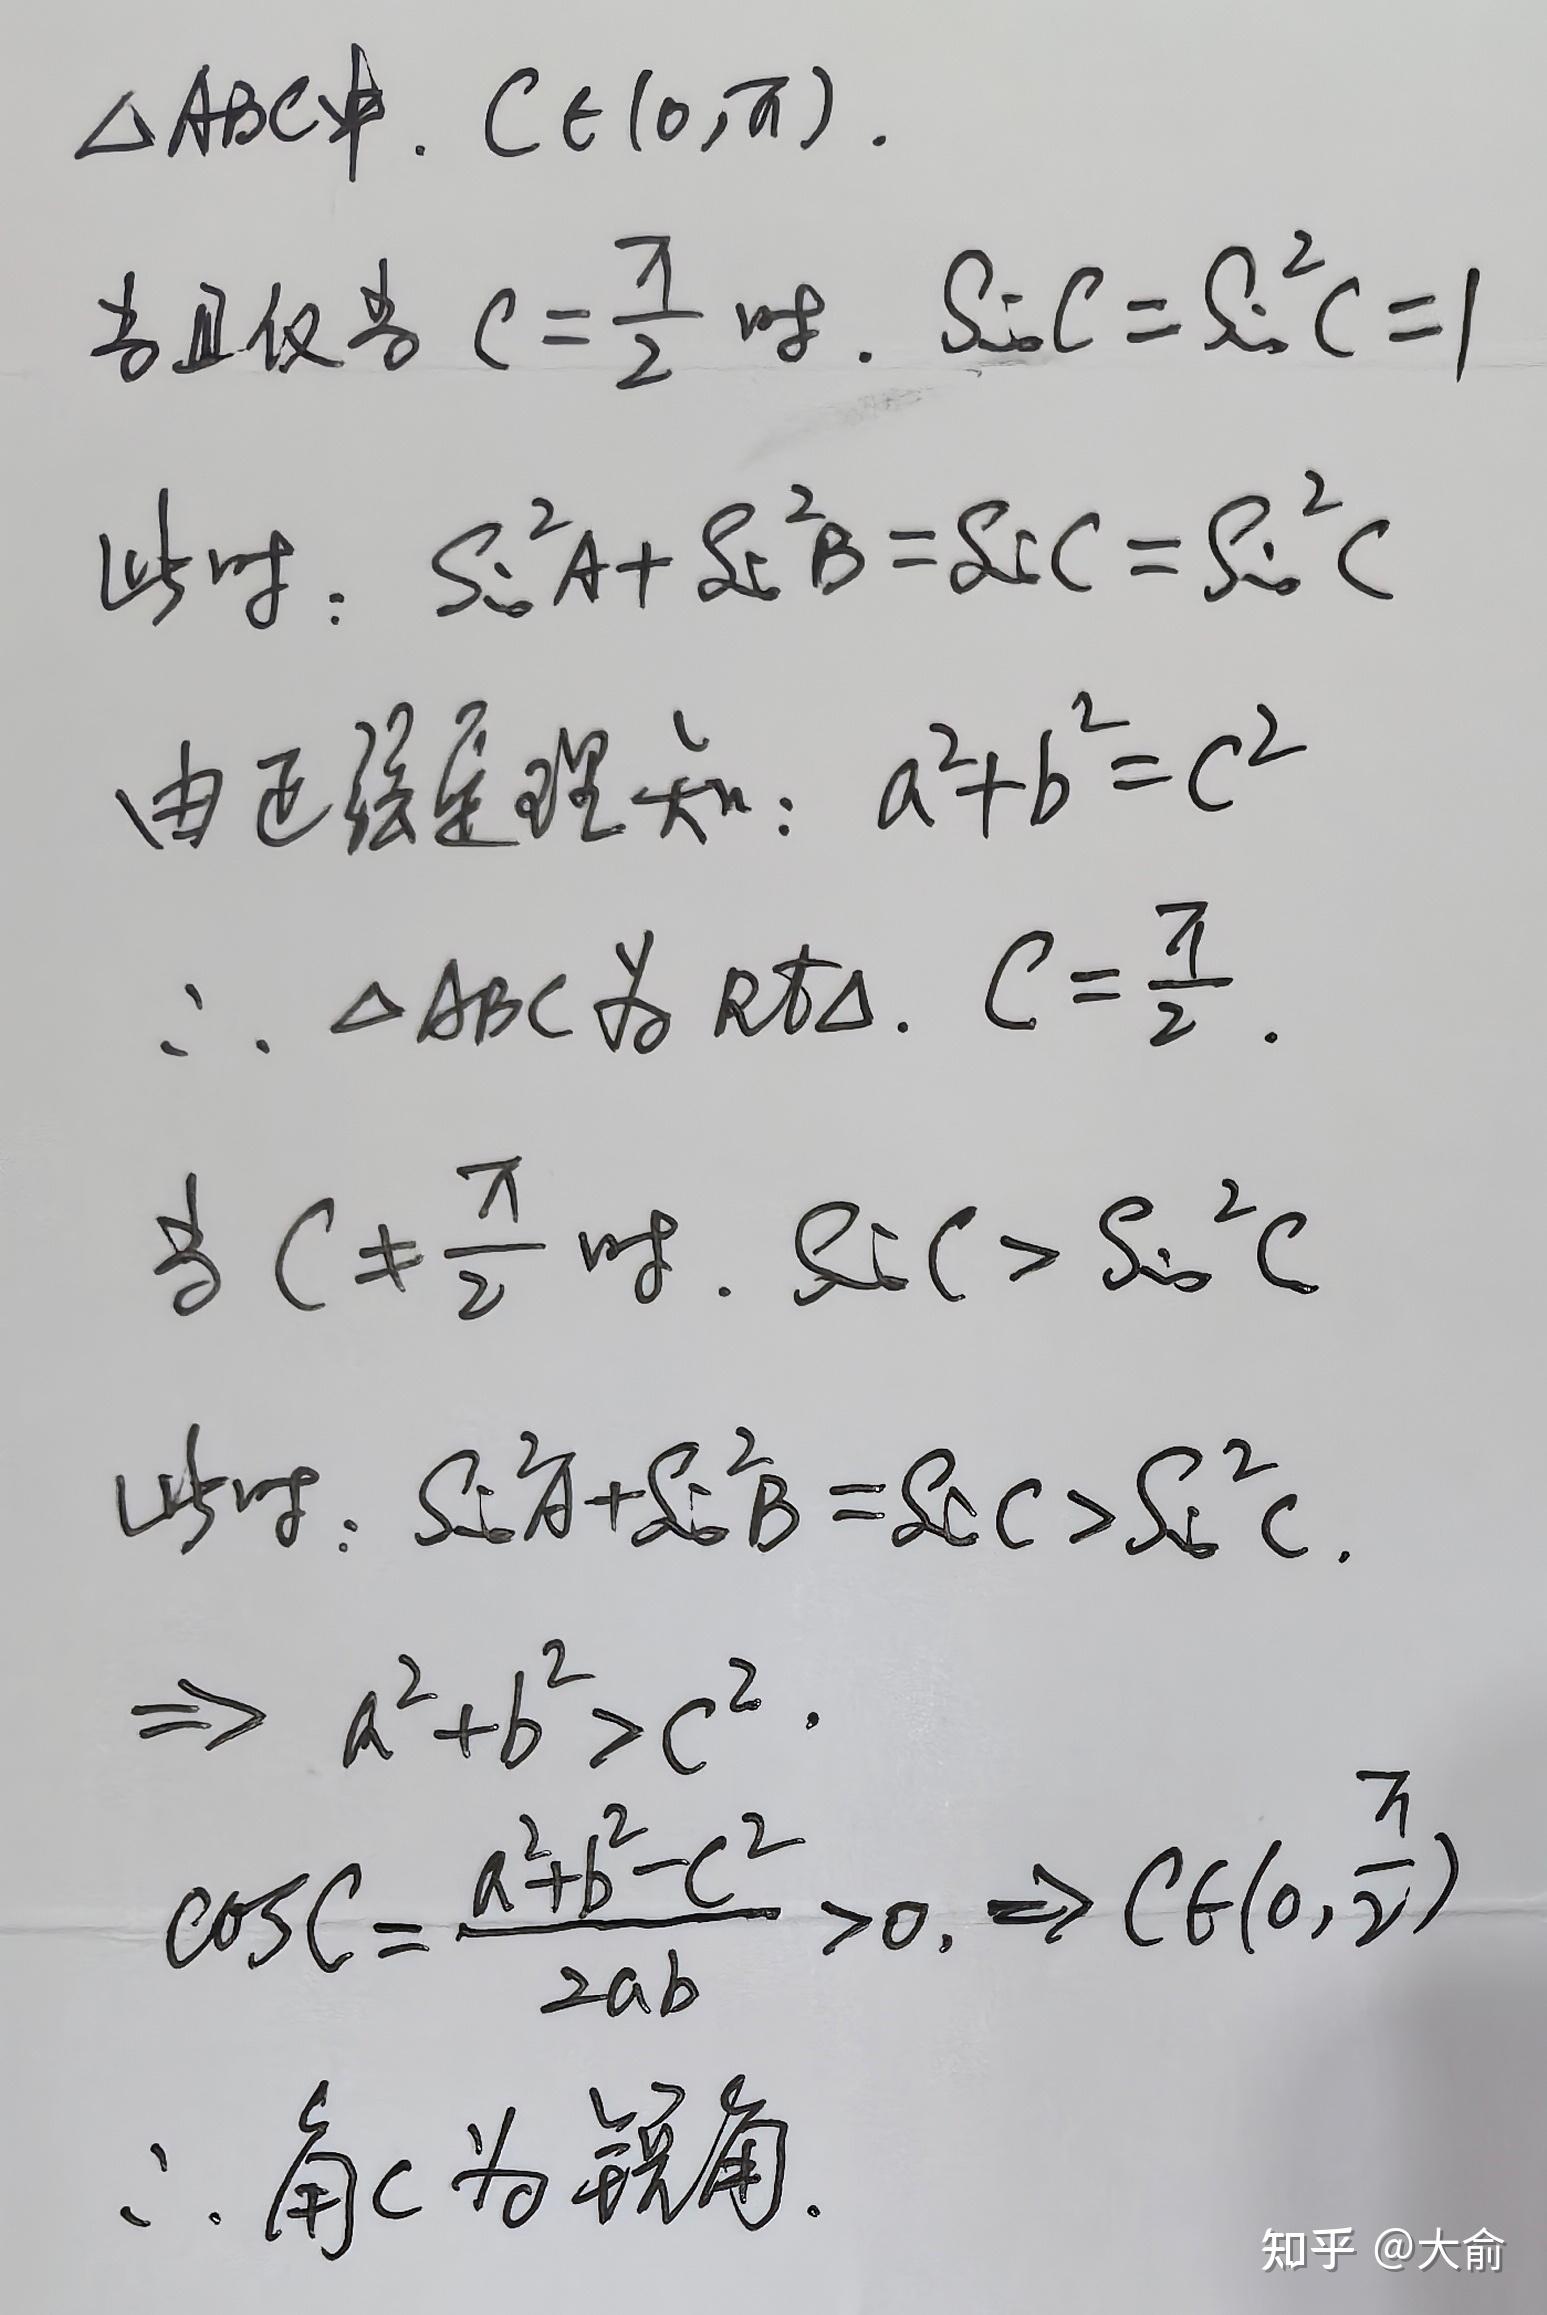 △ABC中. C∈(0,π).
当且仅当 C=π/2 时. SinC=Sin²C=1
此时: Sin²A+Sin²B=SinC=Sin²C
由正弦定理知: a²+b²=c²
∴ △ABC为Rt△. C=π/2.
当 C≠π/2 时. SinC>Sin²C
此时: Sin²A+Sin²B=SinC>Sin²C.
⇒ a²+b²>c².
cosC=(a²+b²-c²)/2ab>0. ⇒ C∈(0,π/2)
∴ 角C为锐角.
知乎 @大俞